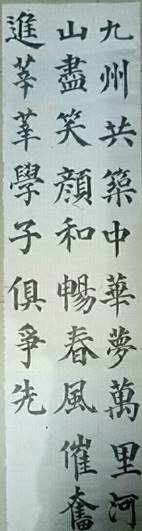 九州共築中華夢萬里河
山盡笑顏和暢春風催奮
進莘莘學子俱爭先